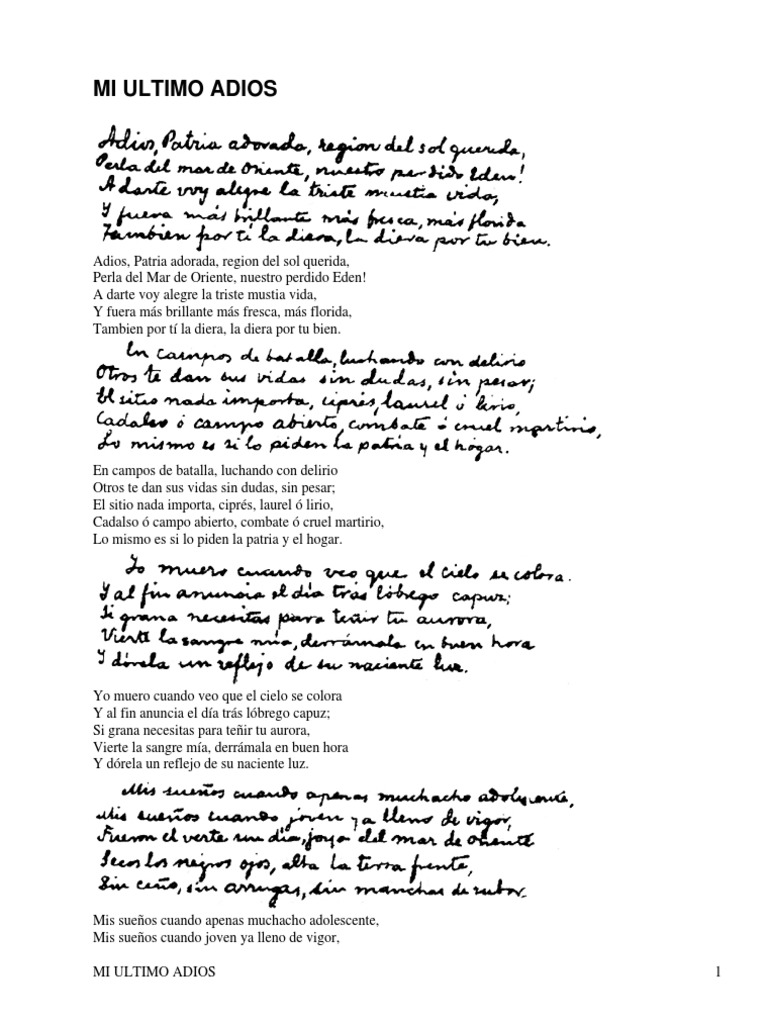 MI ULTIMO ADIOS
Adios, Patria adorada, region del sol querida,
Perla del mar de Oriente, nuestro perdido Eden!
A darte voy alegre la triste mustia vida,
Y fuera más brillante más fresca, más florida
Tambien por tí la diera, la diera por tu bien.
Adios, Patria adorada, region del sol querida,
Perla del Mar de Oriente, nuestro perdido Eden!
A darte voy alegre la triste mustia vida,
Y fuera más brillante más fresca, más florida,
Tambien por tí la diera, la diera por tu bien.
En campos de batalla, luchando con delirio
Otros te dan sus vidas sin dudas, sin pesar;
El sitio nada importa, ciprés, laurel ó lirio,
Cadalso ó campo abierto, combate ó cruel martirio,
Lo mismo es si lo piden la patria y el hogar.
En campos de batalla, luchando con delirio
Otros te dan sus vidas sin dudas, sin pesar;
El sitio nada importa, ciprés, laurel ó lirio,
Cadalso ó campo abierto, combate ó cruel martirio,
Lo mismo es si lo piden la patria y el hogar.
Yo muero cuando veo que el cielo se colora.
Y al fin anuncia el día trás lóbrego capuz;
Si grana necesitas para teñir tu aurora,
Vierte la sangre mía, derrámala en buen hora
Y dórela un reflejo de su naciente luz.
Yo muero cuando veo que el cielo se colora
Y al fin anuncia el día trás lóbrego capuz;
Si grana necesitas para teñir tu aurora,
Vierte la sangre mía, derrámala en buen hora
Y dórela un reflejo de su naciente luz.
Mis sueños cuando apenas muchacho adolescente,
Mis sueños cuando joven ya lleno de vigor,
Fueron el verte un dia, joya del mar de Oriente
Secos los negros ojos, alta la tersa frente,
Sin ceño, sin arrugas, sin manchas de rubor.
Mis sueños cuando apenas muchacho adolescente,
Mis sueños cuando joven ya lleno de vigor,
MI ULTIMO ADIOS 1